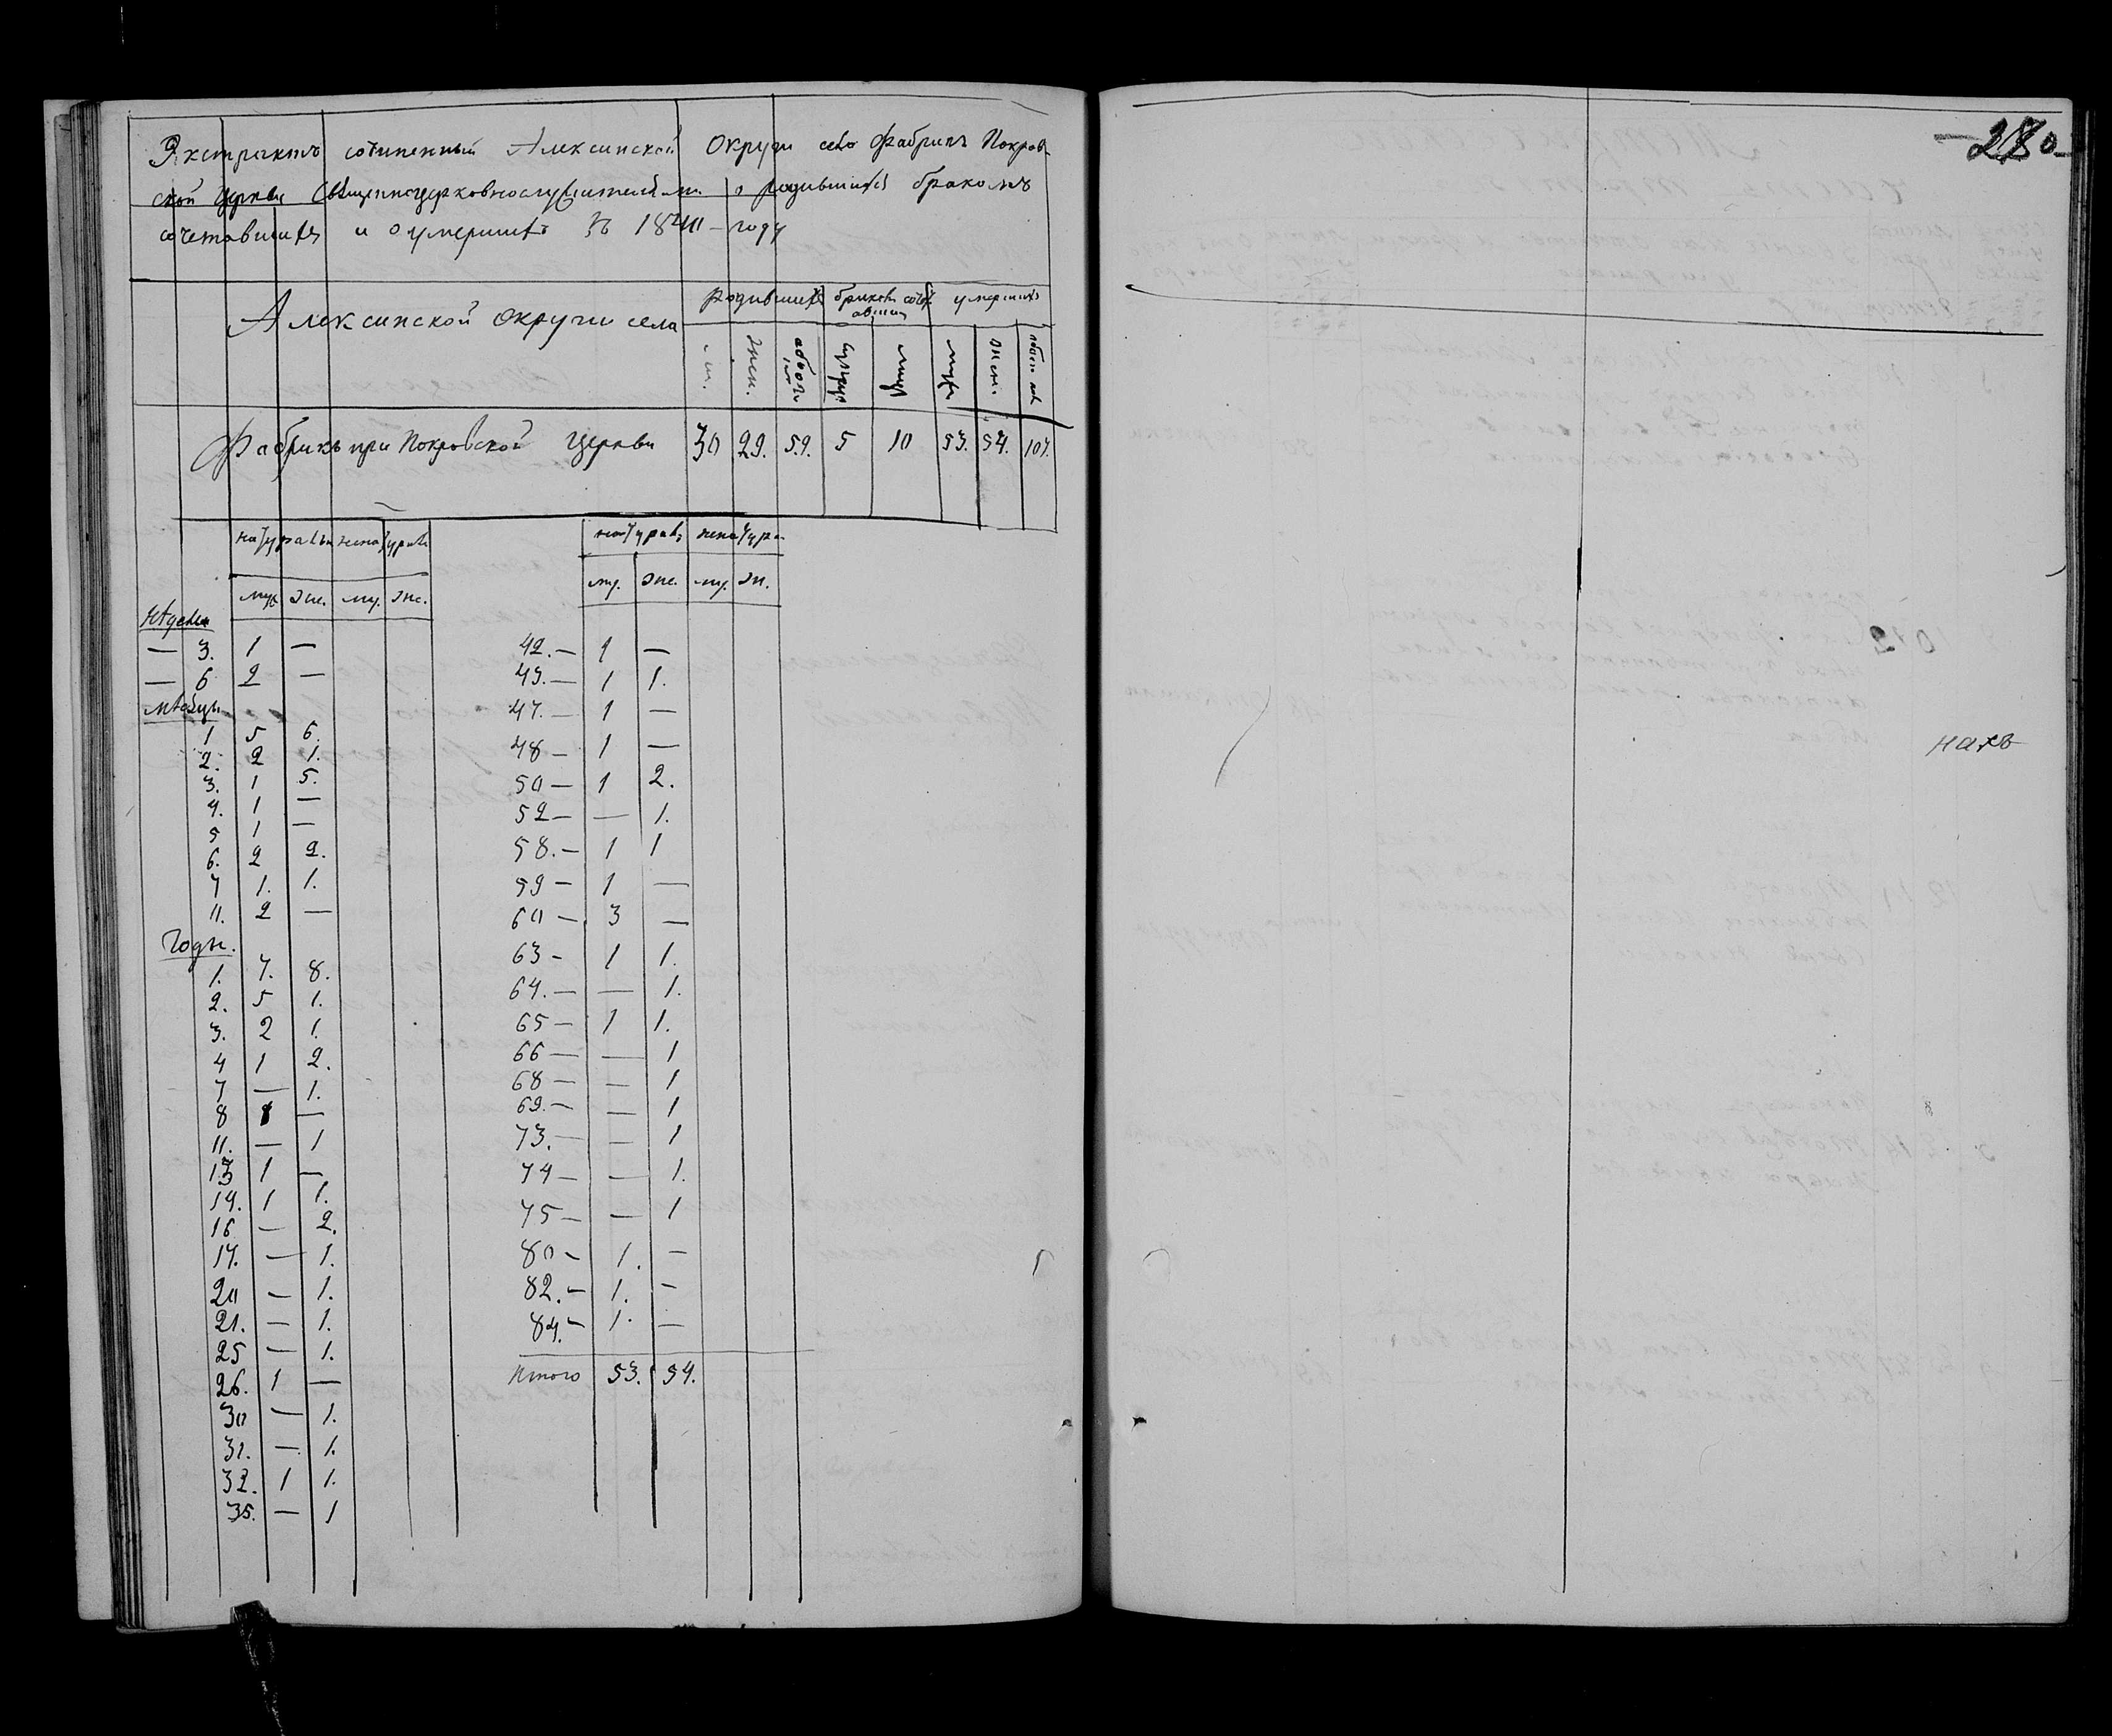 Экстрактъ сочиненный Алексинской Округи села Фабрикъ Покров
ской Церкви Священноцерковнослужителями о родившихся бракомъ
сочетавшихся и о умершихъ въ 1840 году
Алексинской округи села
родившихся бракомъ сочет авшихся умершихъ
м. жен. обоего супруг лицъ муж жен. обоего пол
Фабрикъ при Покровской Церкви 30 29. 59. 5 10 53. 54. 107.
натураль ненатураль
муж жен. му. же.
недели
— 3. 1 —
— 6 2 —
месяцы
1 5 6.
2. 2 1.
3. 1 5.
4. 1 —
5 1 —
6. 2 2.
7 1. 1.
11. 2 —
Годы.
1. 7. 8.
2. 5 1.
3. 2 1.
4 1 2.
7 — 1.
8 1 —
11. — 1
13 1 —
14. 1 1.
16 — 2.
17. — 1.
20 — 1.
21. — 1.
25 — 1.
26. 1 —
30 — 1.
31. — 1.
32. 1 1.
35. — 1
натураль ненатура
му. же. му. ж.
42. — 1 —
43. — 1 1.
47. — 1 —
48 — 1 —
50 — 1 2.
52 — — 1.
58. — 1 1
59 — 1 —
60 — 3 —
63 - 1 1.
64. — — 1.
65 — 1 1.
66 — — 1
68 — — 1
69. — — 1
73. — — 1
74 — — 1.
75 — — 1
80 - 1. —
82. - 1. —
84. - 1. —
Итого 53. 54.
280